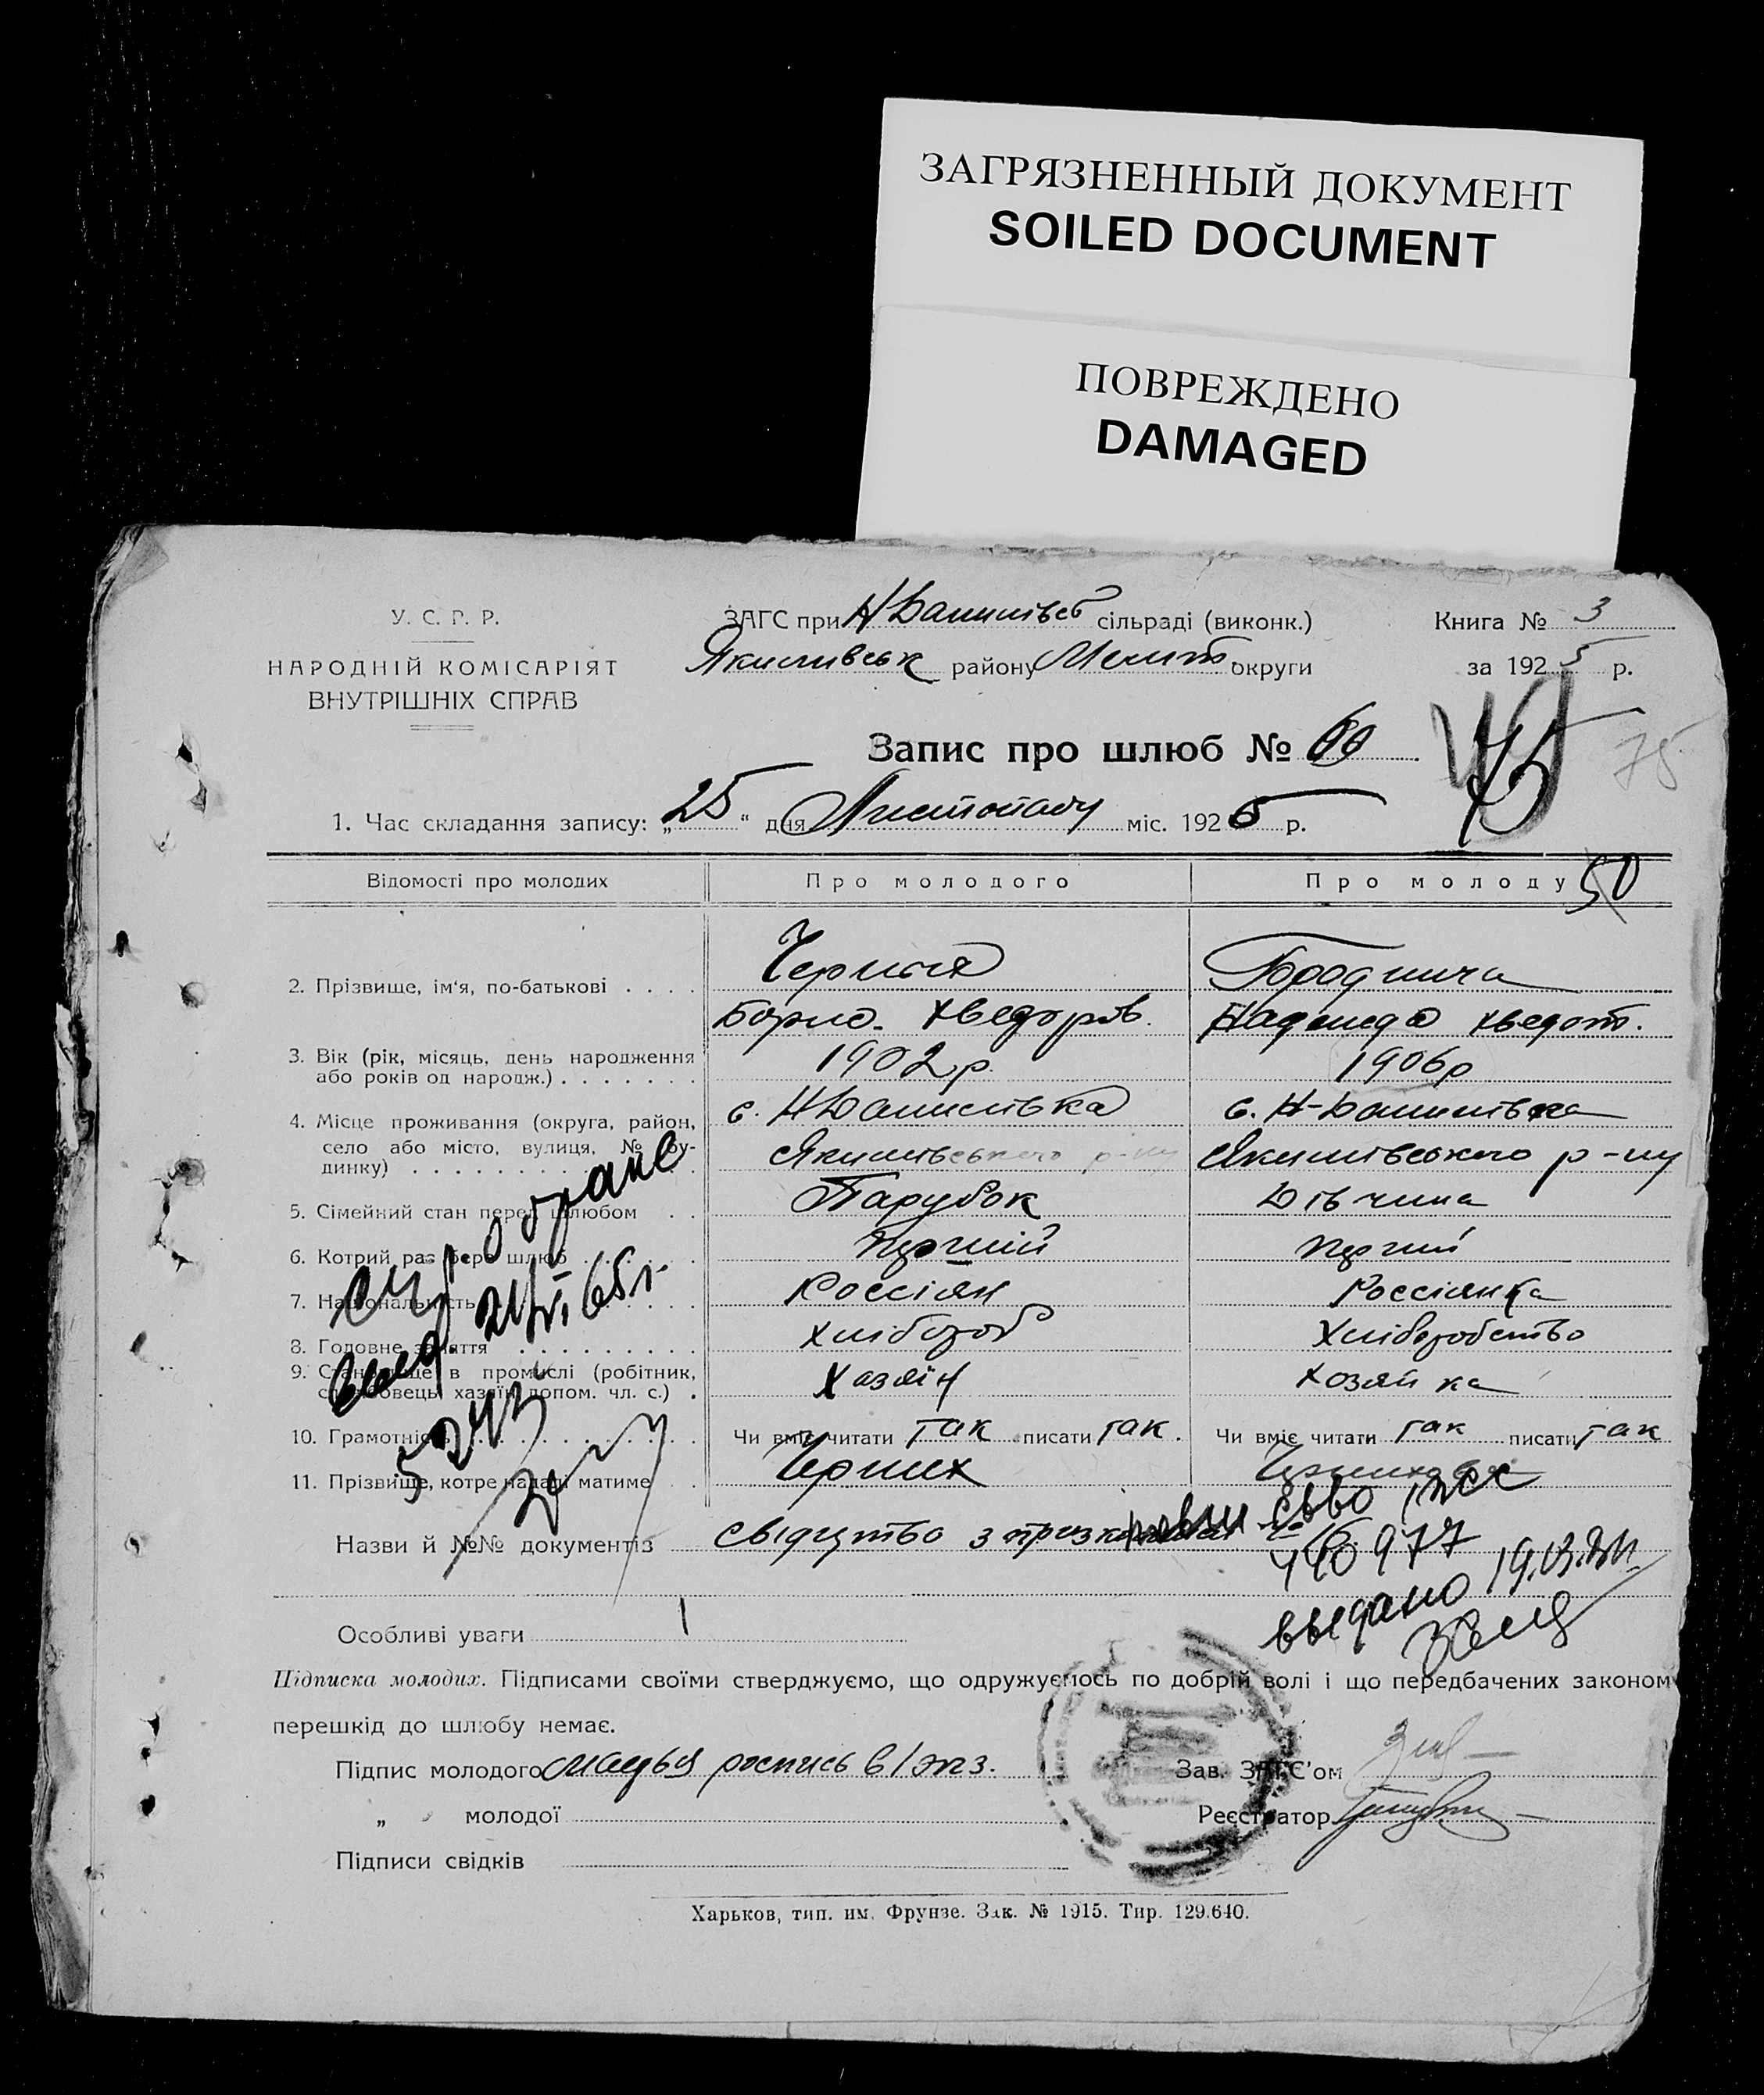 ЗАГРЯЗНЕННЫЙ ДОКУМЕНТ
SOILED DOCUMENT
ПОВРЕЖДЕНО
DAMAGED
У. С. Р. Р.
НАРОДНІЙ КОМІСАРІЯТ
ВНУТРІШНІХ СПРАВ
ЗАГС при сільраді (виконк.)
району Меліт. округи
Книга № 3
за 1925 р.
Запис про шлюб № 60
75
75
1. Час складання запису: „25“ дня Листопаду міс. 1925 р.
Відомості про молодих
Про молодого
Про молоду
50
2. Прізвище, ім'я, по-батькові . . . .
Хведоров.
3. Вік (рік, місяць, день народження
або років од народж.) . . . . . . .
1902 р.
1906 р
4. Місце проживання (округа, район,
село або місто, вулиця, № бу-
динку) . . . . . . . . . . . . .
с. Н Данилівка
с. Н-Данилівка
Якимівського р-ну
Якимівського р-ну
5. Сімейний стан перед шлюбом . .
Парубок
Дівчина
6. Котрий раз бере шлюб . . . . . .
Перший
Перший
7. Національність . . . . . . . . . .
Россіян
Россіянка
8. Головне заняття . . . . . . . . .
Хлібороб
Хліборобство
9. Становище в промислі (робітник,
службовець, хазяїн, допом. чл. с.) .
Хазяїн
Хозяйка
10. Грамотність . . . . . . . . . . .
Чи вміє читати так писати так.
Чи вміє читати так писати так
11. Прізвище, котре надалі матиме .
Черних
Назви й №№ документів
свідуцтво з
410977
выдано 19.
Особливі уваги
Підписка молодих. Підписами своїми стверджуємо, що одружуємось по добрій волі і що передбачених законом
перешкід до шлюбу немає.
Підпис молодого роспись в 1 экз.
Зав. ЗАГС'ом
„ молодої
Реєстратор
Підписи свідків
Харьков, тип. им. Фрунзе. Зак. № 1915. Тир. 129.640.